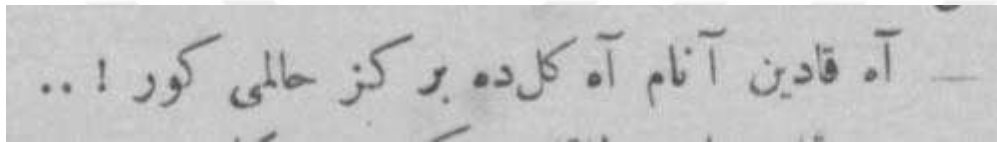 — آه قادین آنام آه كل‌ده بر كز حالمی كور ! ..